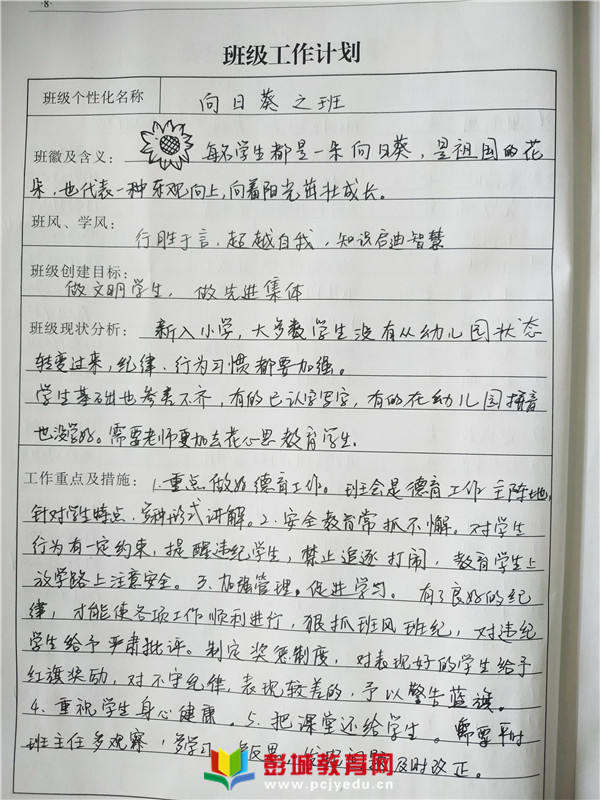 ·8·
班级工作计划
班级个性化名称 向日葵之班
班徽及含义： 每名学生都是一朵向日葵，是祖国的花
朵，也代表一种乐观向上，向着阳光茁壮成长。
班风、学风：
行胜于言，超越自我，知识启迪智慧
班级创建目标：
做文明学生，做先进集体
班级现状分析： 新入小学，大多数学生没有从幼儿园状态
转变过来，纪律、行为习惯都要加强。
学生基础也参差不齐，有的已认字写字，有的在幼儿园拼音
也没学好。需要老师更加去花心思教育学生。
工作重点及措施： 1.重点做好德育工作。班会是德育工作主阵地，
针对学生特点，多种形式讲解。2.安全教育常抓不懈。对学生
行为有一定约束，提醒违纪学生，禁止追逐打闹，教育学生上
放学路上注意安全。3.加强管理。促进学习。有了良好的纪
律，才能使各项工作顺利进行，狠抓班风班纪，对违纪
学生给予严肃批评。制定奖惩制度，对表现好的学生给予
红旗奖励，对不守纪律，表现较差的，予以警告蓝旗。
4.重视学生身心健康。5.把课堂还给学生。需要平时
班主任多观察，多学习，多反思，及时改正。
彭城教育网
www.pcjyedu.cn